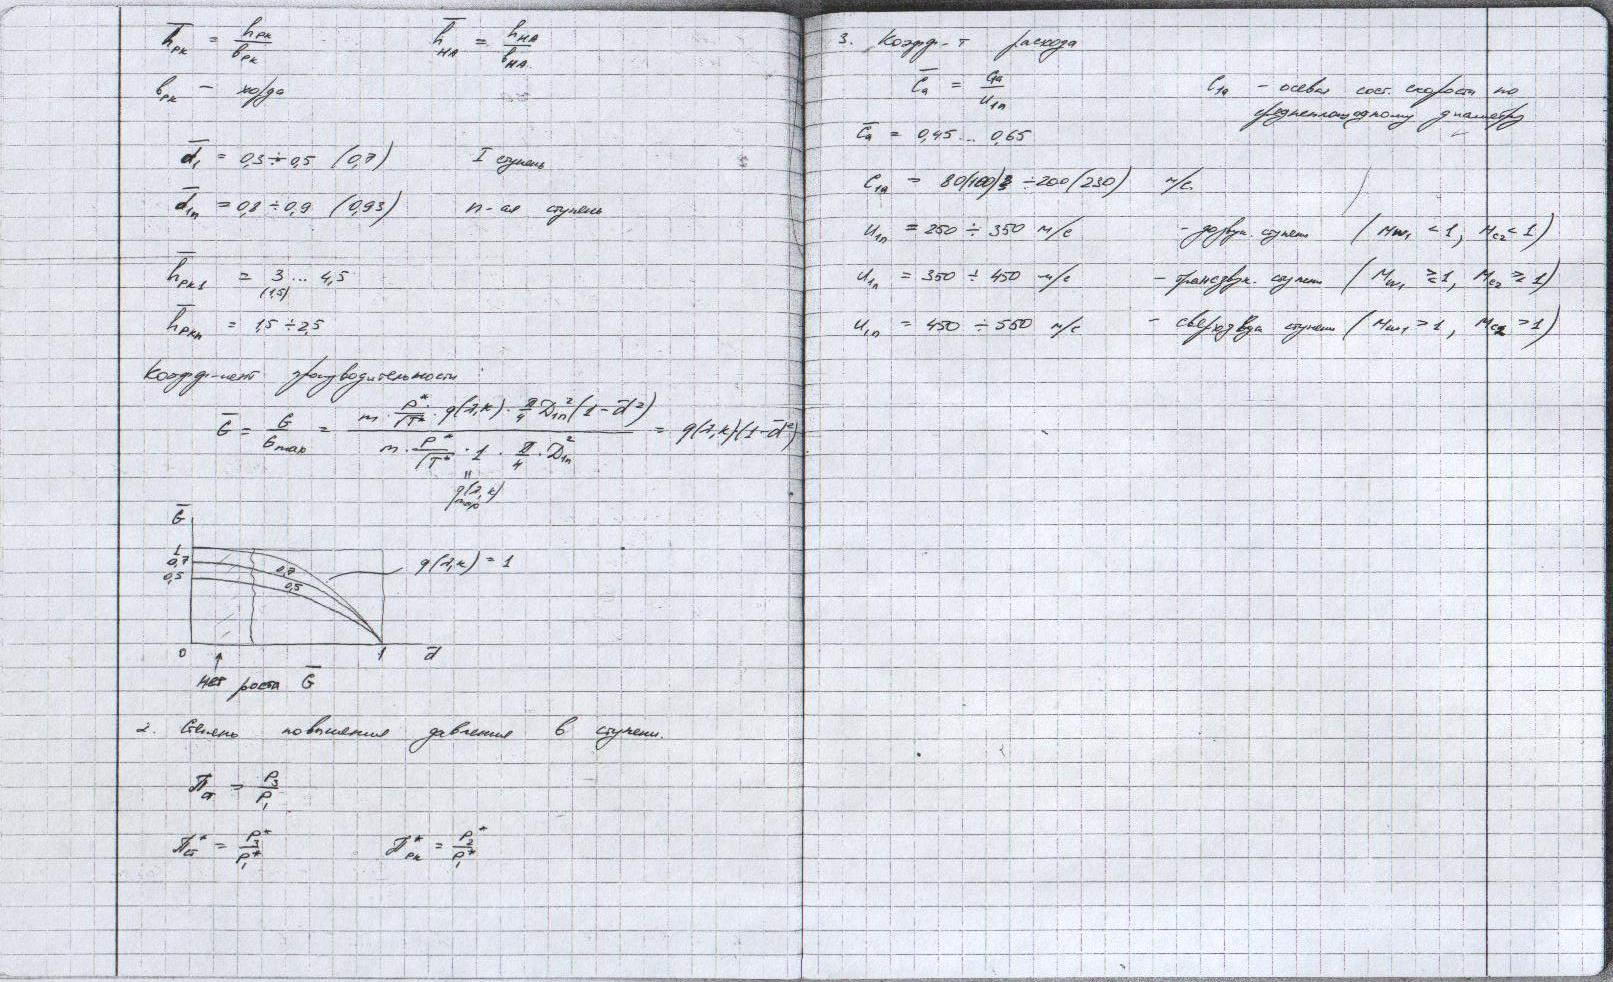 h̅рк = hрк/bрк h̅НА = hНА/bНА
bрк – хорда
d̅₁ = 0,3 ÷ 0,5 (0,7) I ступень
d̅₁п = 0,8 ÷ 0,9 (0,93) n-ая ступень
h̅рк1 = 3 ... 4,5
(1,5)
h̅ркn = 1,5 ÷ 2,5
Коэфф-иент производительности
G̅ = G/Gmax = (m · P*/√T* · q(λ,k) · π/4 D₁п²(1 - d̅²)) / (m · P*/√T* · 1 · π/4 · D₁п²) = q(λ,k)·(1-d̅²)
"
q(λ,k)
max
G̅
1
0,7
0,5
0,7
0,5
q(λ,k) = 1
0 1 d̅
нет роста G̅
2. Степень повышения давления в ступени.
Πст = P₃/P₁
Πст* = P₃*/P₁* Πрк* = P₂*/P₁*
3. Коэфф-т расхода
C̅a = C₁a/U₁п C₁a – осевая сост. скорости по
среднеплощадному диаметру
C̅a = 0,45 ... 0,65
C₁a = 80(100) ÷ 200 (230) м/с
U₁п = 250 ÷ 350 м/с – дозвук. ступени (Mw₁ < 1, Mc₂ < 1)
U₁п = 350 ÷ 450 м/с – трансзвук. ступени (Mw₁ ⪌ 1, Mc₂ ⪌ 1)
U₁п = 450 ÷ 550 м/с – сверхзвук ступени (Mw₁ > 1, Mc₂ > 1)